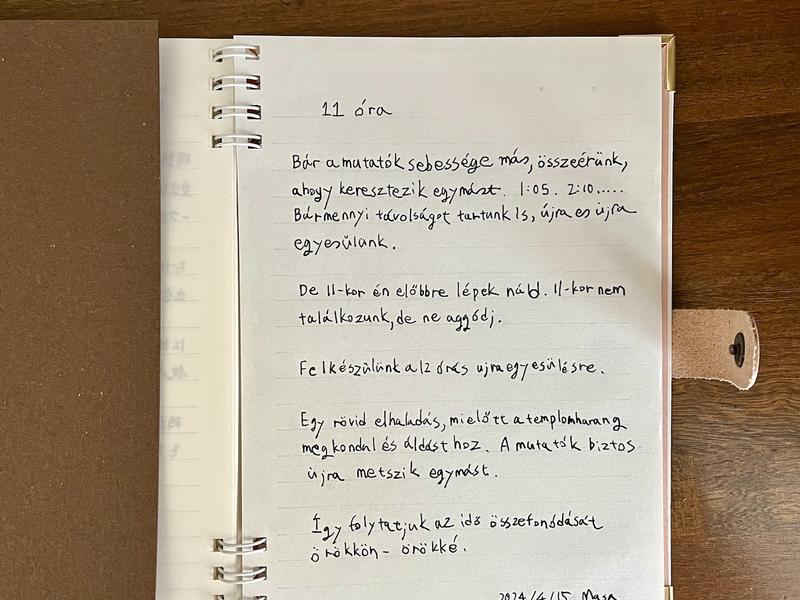 11 óra
Bár a mutatók sebessége más, összeérünk,
ahogy keresztezik egymást. 1:05. 2:10.....
Bármennyi távolságot tartunk is, újra es újra
egyesülünk.
De 11-kor én előbbre lépek nálad. 11-kor nem
találkozunk, de ne aggódj.
Felkészülünk a 12 órás ujraegyesülésre.
Egy rövid elhaladás, mielőtt a templomharang
megkondul és áldást hoz. A mutatók biztos
újra metszik egymást.
Így folytatjuk az idő összefonódását
örökkön-örökké.
2024/4/15 Masa